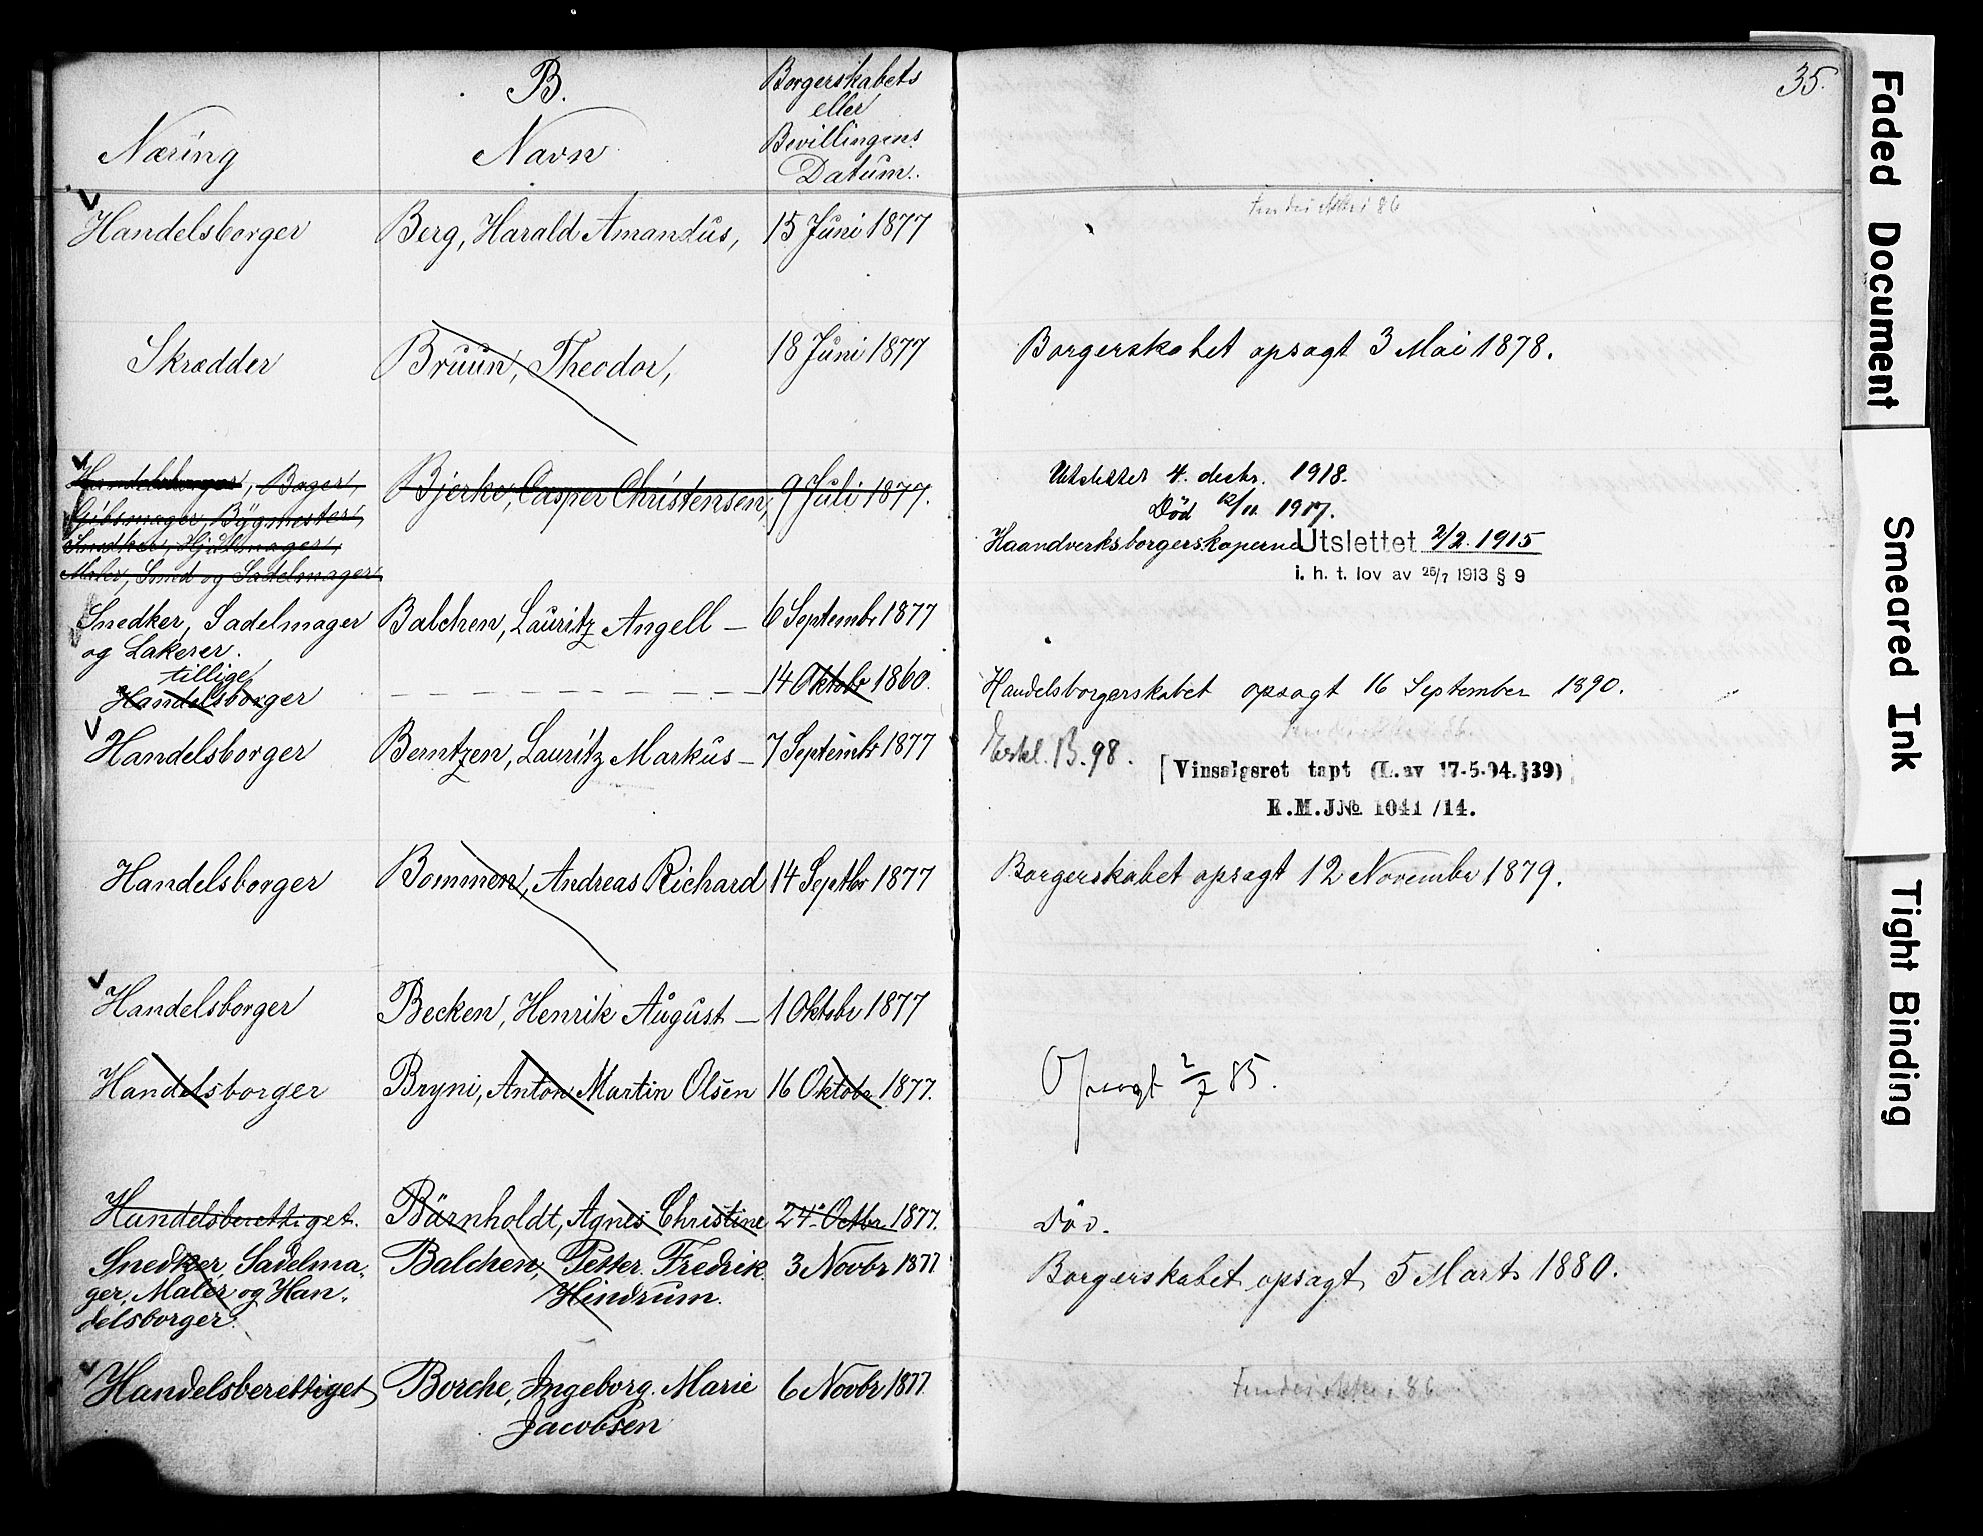 B.
Næring
Navn
Borgerskabets
eller
Bevillingens
Datum.
35.
Handelsborger Berg, Harald Amandus, 15 Juni 1877
Skrædder Bruun, Theodor, 18 Juni 1877 Borgerskabet opsagt 3 Mai 1878.
Handelsborger, Bager, Bjerke, Casper Christensen, 9 Juli 1877. Utslettet 4. decbr. 1918.
Gibsmager, Bygmester, Død 12/11 1917.
Snedker, Hjulmager, Haandverksborgerskaperne Utslettet 2/2. 1915
Maler, Smed og Sadelmager i. h. t. lov av 25/7 1913 § 9
Snedker, Sadelmager Balchen, Lauritz Angell — 6 Septembr 1877
og Lakerer.
tillige
Handelsborger — — — — — — — — 14 Oktobr 1860. Handelsborgerskabet opsagt 16 September 1890.
Handelsborger Berntzen, Lauritz Markus — 7 Septembr 1877 Erkl. B. 98.
[Vinsalgsret tapt (L. av 17-5-04. §39)]
E.M.J№ 1041 /14.
Handelsborger Bommen, Andreas Richard 14 Septbr 1877 Borgerskabet opsagt 12 Novembr 1879.
Handelsborger Becken, Henrik August — 1 Oktobr 1877
Handelsborger Bryni, Anton Martin Olsen 16 Oktobr 1877. Opsagt 2/7 85.
Handelsberettiget. Bärnholdt, Agnes Christine 24. Octbr. 1877. Død.
Snedker, Sadelma- Balchen, Petter Fredrik 3 Novbr 1877 Borgerskabet opsagt 5 Marts 1880.
ger, Maler og Han- Hindrum.
delsborger.
Handelsberettiget Borche, Ingeborg Marie 6 Novbr 1877.
Jacobsen
Faded Document
Smeared Ink
Tight Binding